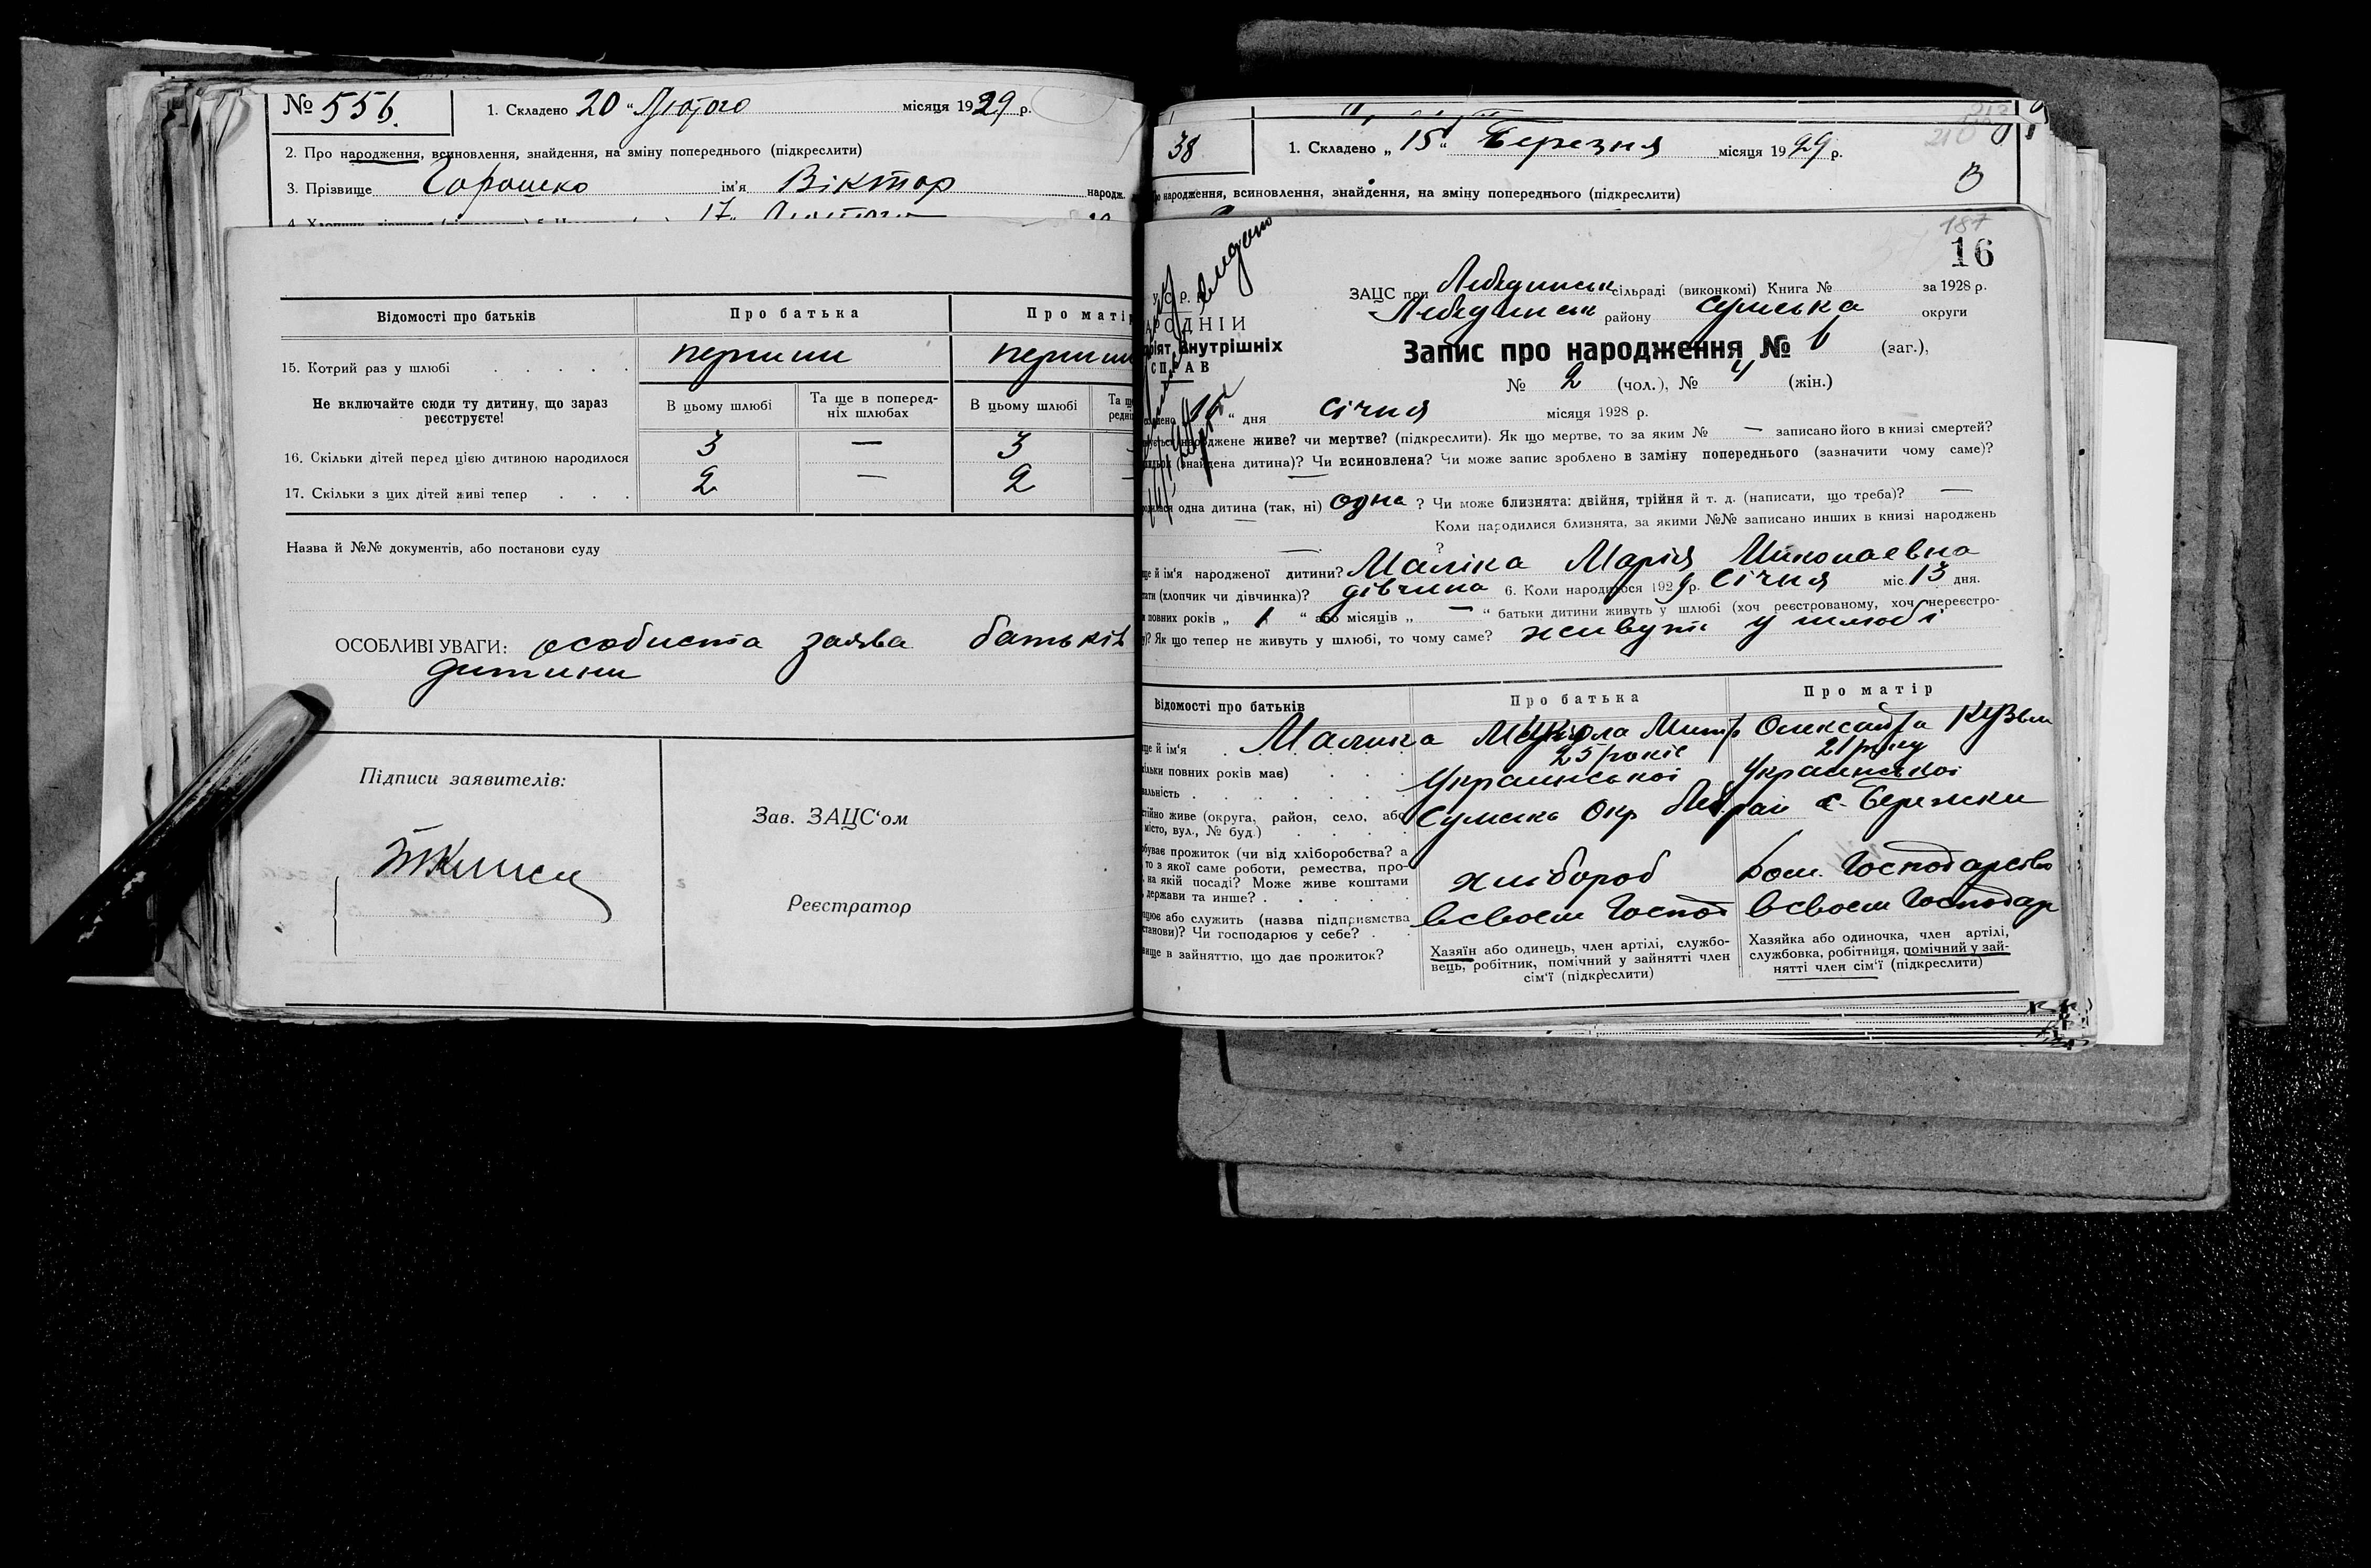 № 556. 1. Складено 20 " Лютого місяця 1929 р.
2. Про народження, всиновлення, знайдення, на зміну попереднього (підкреслити)
3. Прізвище ім'я Віктор народж.
17 "
Відомості про батьків Про батька Про матір
15. Котрий раз у шлюбі . . . . . перший перший
Не включайте сюди ту дитину, що зараз реєструєте!
В цьому шлюбі Та ще в попередніх шлюбах В цьому шлюбі
16. Скільки дітей перед цією дитиною народилося 3 — 3
17. Скільки з цих дітей живі тепер . . . 2 — 2
Назва й №№ документів, або постанови суду
ОСОБЛИВІ УВАГИ: особиста заява батьків
дитини
Підписи заявителів:
Зав. ЗАЦС'ом
Реєстратор
38 1. Складено „ 15 " Березня місяця 1929 р.
народження, всиновлення, знайдення, на зміну попереднього (підкреслити)
В
187
16
ЗАЦС при Лебединськ сільраді (виконкомі) Книга № за 1928 р.
Лебединськ району Сумська округи
Внутрішніх
СПРАВ
Запис про народження № 6 (заг.),
№ 2 (чол.), № 4 (жін.)
" дня Січня місяця 1928 р.
народжене живе? чи мертве? (підкреслити). Як що мертве, то за яким № — записано його в книзі смертей?
(знайдена дитина)? Чи всиновлена? Чи може запис зроблено в заміну попереднього (зазначити чому саме)?
—
одна дитина (так, ні) одна ? Чи може близнята: двійня, трійня й т. д. (написати, що треба)? —
Коли народилися близнята, за якими №№ записано инших в книзі народжень
— ?
й ім'я народженої дитини? Маліка Марія Миколаевна
(хлопчик чи дівчинка)? дівчина 6. Коли народилося 1929 р. Січня міс 13 дня.
повних років „ 1 " або місяців „ — " батьки дитини живуть у шлюбі (хоч реєстрованому, хоч нереєстро-
)? Як що тепер не живуть у шлюбі, то чому саме? живуть у шлюбі
Відомості про батьків Про батька Про матір
й ім'я . Малика Микола Митр Олександра Кузьм
повних років має) . . . 25 років 21 року
. . . . . . . Украинської Украинської
живе (округа, район, село, або місто, вул., № буд.) . . . . Сумська Окр Леб. рай с. Бережки
прожиток (чи від хліборобства? а то з якої саме роботи, ремества, про- на якій посаді? Може живе коштами держави та инше? . . . . . хлібороб Дом. Господарство
або служить (назва підприємства Чи господарює у себе? . . всвоем Господ всвоем Господар
в зайняттю, що дає прожиток?
Хазяїн або одинець, член артілі, службовець, робітник, помічний у зайнятті член сім'ї (підкреслити)
Хазяйка або одиночка, член артілі, службовка, робітниця, помічний у зайнятті член сім'ї (підкреслити)